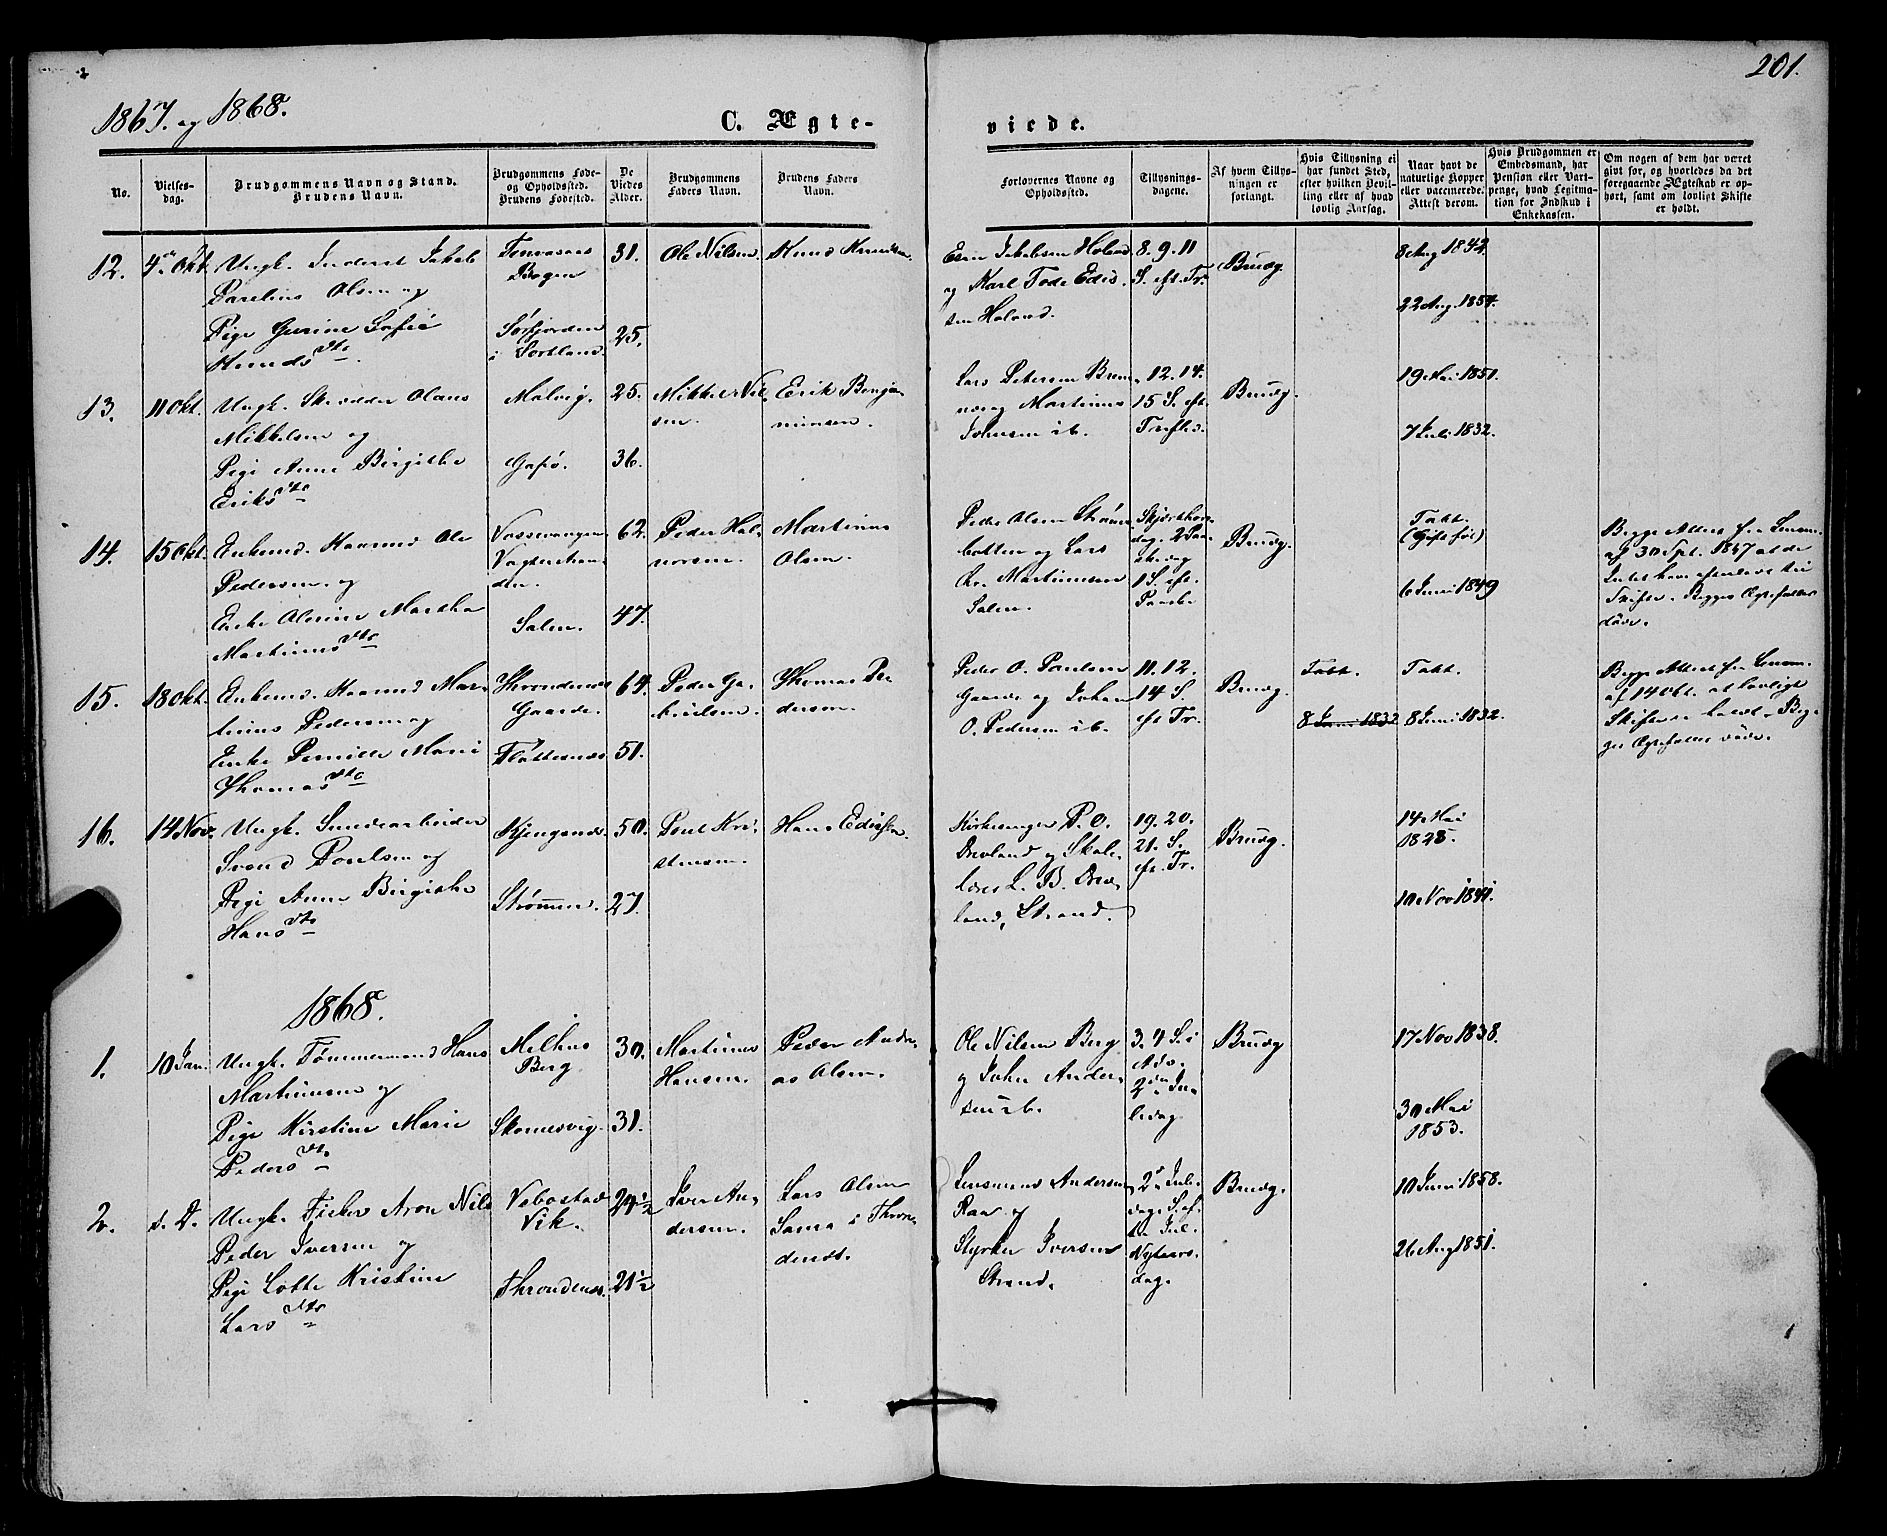 201.
1867. og 1868.
C. Ægte-
viede.
No.
Vielses-
dag.
Brudgommens Navn og Stand.
Brudens Navn.
Brudgommens Føde-
og Opholdssted.
Brudens Fødested.
De
Viedes
Alder.
Brudgommens
Faders Navn.
Brudens Faders
Navn.
Forlovernes Navne og
Opholdssted.
Tillysnings-
dagene.
Af hvem Tillys-
ningen er
forlangt.
Hvis Tillysning ei
har fundet Sted,
efter hvilken Bevil-
ling eller af hvad
lovlig Aarsag.
Naar havt de
naturlige Kopper
eller vaccinerede.
Attest derom.
Hvis Brudgommen er
Embedsmand, har
Pension eller Vart-
penge, hvad Legitima-
tion for Indskud i
Enkekassen.
Om nogen af dem har været
givt før, og hvorledes da det
foregaaende Ægteskab er op-
hørt, samt om lovligt Skifte
er holdt.
12. 4de Okt. Ungk. Inderst Jakob
Parelius Olsen og
Pige Gurine Sofie
Knuds Dtr
Bogen
Sørfjorden
i Sortland.
31.
25.
Ole Nilsen. Knud Knudsen.
Jakobsen Holand
og Karl Tode Edis-
sen Holand.
8. 9. 11
S. eft. Tr.
Brudg.
8 Aug 1842
22 Aug. 1854.
13. 11 Okt. Ungk. Skrædder Olaus
Mikkelsen og
Pige Anne Birgithe
Eriks Dtr
Malvig.
Gafø.
25.
36.
Mikkel Nil-
sen.
Erik Benja-
minsen.
Lars Petersen
og Martinus
Johnsen ib.
12. 14.
15 S. eft.
Trefh.
Brudg.
19 Mai 1851.
7 Juli 1832.
14. 15 Okt. Enkemd. Huusmd Ole
Pedersen og
Enke Olsine Martha
Martinus Dtr
Vossevangen
Salen.
62.
47.
Peder Hal-
vorsen.
Martinus
Olsen.
Peder Olsen Strøms-
botten og Lars
Chr. Martinussen
Salen.
Skjærthors-
dag. 2 Paa-
skedag
1 S. eft.
Paaske
Brudg.
Takt.
(Gift før)
6 Juni 1849
Begge Attest fra Lensm.
af 30 Spt. 1867 at de
Intet have efterladt til
Skifte. Begges Ægtefæller
døde.
15. 18 Okt. Enkemd. Huusmd Mar-
tinus Pedersen og
Enke Pernille Marie
Thomas Dtr
Throndenæs
Gaarde.
Flottenæs
64.
51.
Peder Ga-
brielsen.
Thomas Pe-
dersen.
Peder O. Paulsen
Gaarde og Johan
O. Pedersen ib.
11. 12.
14 S.
eft Tr.
Brudg.
Takt.
8 Juni 1832
Takt.
8 Juni 1832.
Begge Attest fra Lensm.
af 14 Okt. at lovligt
Skifte er holdt. Beg-
ges Ægtefæller døde.
16. 14 Nov. Ungk. Søndearbeider
Svend Poulsen og
Pige Anne Birgithe
Hans Dtr
Kjengsnæs
Strømmen.
50.
27.
Poul Kri-
stensen.
Hans Edissen.
Kirkesanger P. O.
Drevland og Skole-
lærer L. B. Drev-
land, Strand.
19. 20.
21. S.
eft. Tr.
Brudg.
14 Mai
1828.
10 Nov 1841.
1868.
1. 10 Jan. Ungk. Tømmermand Hans
Martinussen og
Pige Kirstine Marie
Peders Dtr
Melhus
Berg
Skomesvig.
30.
31.
Martinus
Hansen.
Peder Andre-
as Olsen.
Ole Nilsen Berg
og Johan Ander-
sen ib.
3. 4 S. i
Adv.
2den Ju-
ledag.
Brudg
17 Nov 1838.
30 Mai
1853.
2. s. D. Ungk. Fisker Aron Nils
Peder Iversen og
Pige Lotte Kristine
Lars Dtr
Vebostad
Vik.
Throndenæs.
24½
21½
Iver An-
dersen.
Lars Olsen
Sama i Thron-
denæs.
Lensmand Andersen,
Raa og
Styrker Iversen
Strand.
2den Jule-
dag. S. ef.
Jul.
Nytaars-
dag.
Brudg.
10 Juni 1858.
26 Aug 1851.